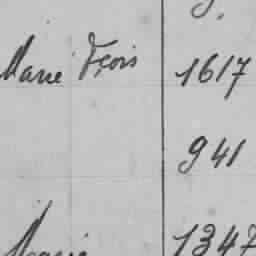 Marie Fçois 1617
941
Marie 1347